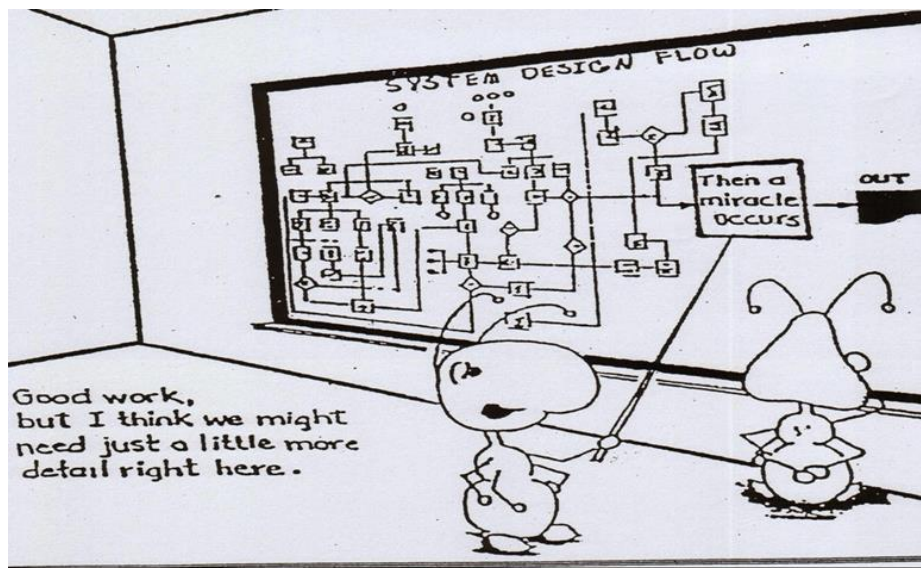 SYSTEM DESIGN FLOW
OUT
Then a
miracle
occurs
Good work,
but I think we might
need just a little more
detail right here.